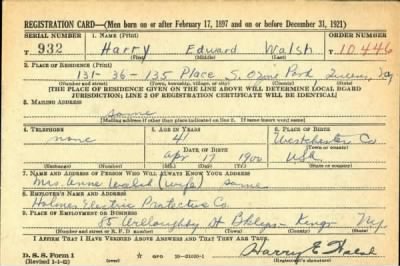 REGISTRATION CARD—(Men born on or after February 17, 1897 and on or before December 31, 1921)
SERIAL NUMBER 1. NAME (Print) ORDER NUMBER
T 932 Harry Edward Walsh T 10,446
(First) (Middle) (Last)
2. PLACE OF RESIDENCE (Print)
131-36-135 Place S. Ozone Park Queens, NY
(Number and street) (Town, township, village, or city) (County) (State)
[THE PLACE OF RESIDENCE GIVEN ON THE LINE ABOVE WILL DETERMINE LOCAL BOARD
JURISDICTION; LINE 2 OF REGISTRATION CERTIFICATE WILL BE IDENTICAL]
3. MAILING ADDRESS
Same
[Mailing address if other than place indicated on line 2. If same insert word same]
4. TELEPHONE 5. AGE IN YEARS 6. PLACE OF BIRTH
none 41 Westchester Co
DATE OF BIRTH (Town or county)
Apr 17 1900 USA
(Exchange) (Number) (Mo.) (Day) (Yr.) (State or country)
7. NAME AND ADDRESS OF PERSON WHO WILL ALWAYS KNOW YOUR ADDRESS
Mrs. Anne Walsh (wife) Same
8. EMPLOYER'S NAME AND ADDRESS
Holmes Electric Protective Co.
9. PLACE OF EMPLOYMENT OR BUSINESS
85 Willoughby St Bklyn- Kings NY
(Number and street or R. F. D. number) (Town) (County) (State)
I AFFIRM THAT I HAVE VERIFIED ABOVE ANSWERS AND THAT THEY ARE TRUE.
D. S. S. Form 1 GPO
(Revised 1-1-42) (over) Harry E Walsh
(Registrant's signature)